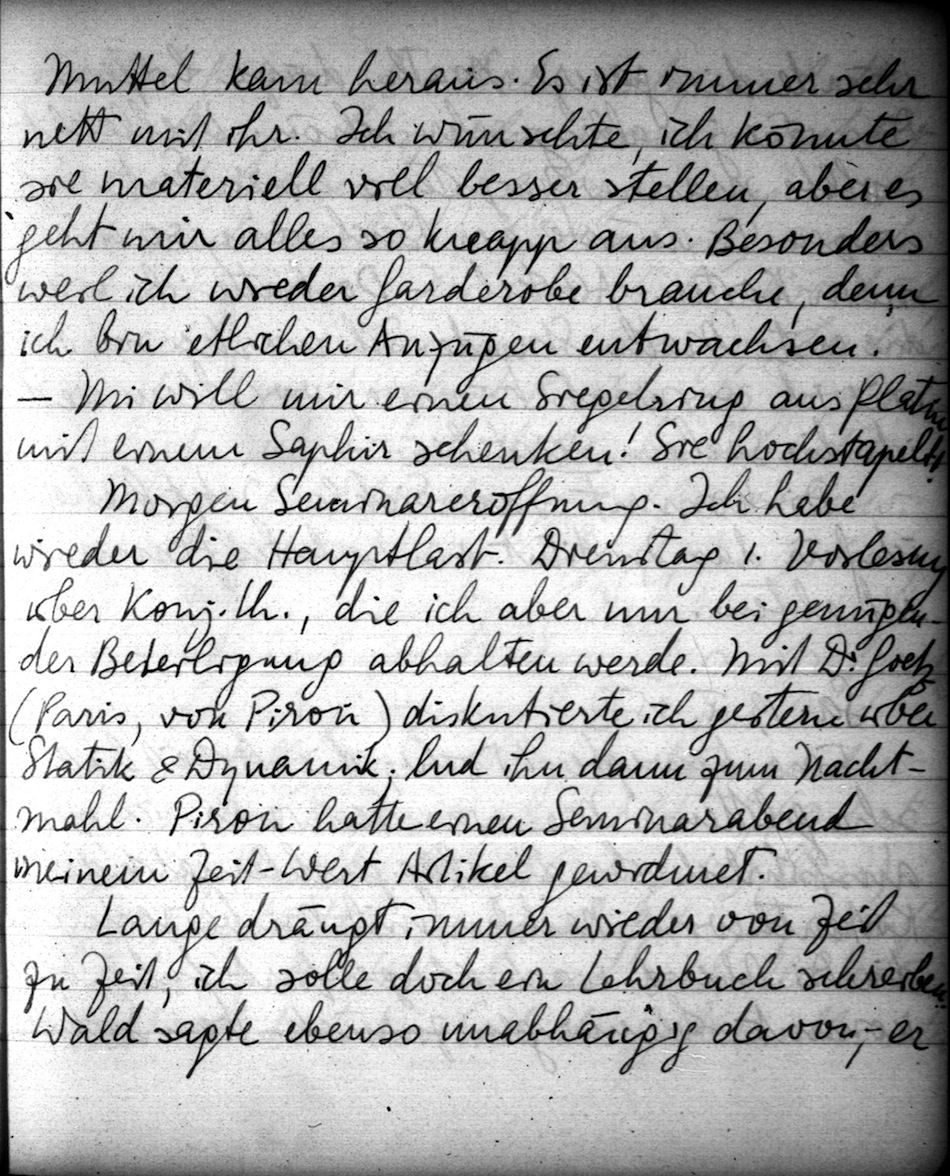 Muttel kam heraus. Es ist immer sehr
nett mit ihr. Ich wünschte, ich könnte
sie materiell viel besser stellen, aber es
geht mir alles so knapp aus. Besonders
weil ich wieder Garderobe brauche, denn
ich bin etlichen Anzügen entwachsen.
— Mi will mir einen Siegelring aus Platin
mit einem Saphir schenken! Sie hochstapelt!
Morgen Seminareröffnung. Ich habe
wieder die Hauptlast. Dienstag 1. Vorlesung
über Konj. th., die ich aber nur bei genügen-
der Beteiligung abhalten werde. Mit Dr.
(Paris, von Pirou) diskutierte ich gestern über
Statik & Dynamik, lud ihn dann zum Nacht-
mahl. Pirou hatte einen Seminarabend
meinem Zeit-Wert Artikel gewidmet.
Lange drängt immer wieder von Zeit
zu Zeit, ich solle doch ein Lehrbuch schreiben
Wald sagte ebenso unabhängig davon, – er